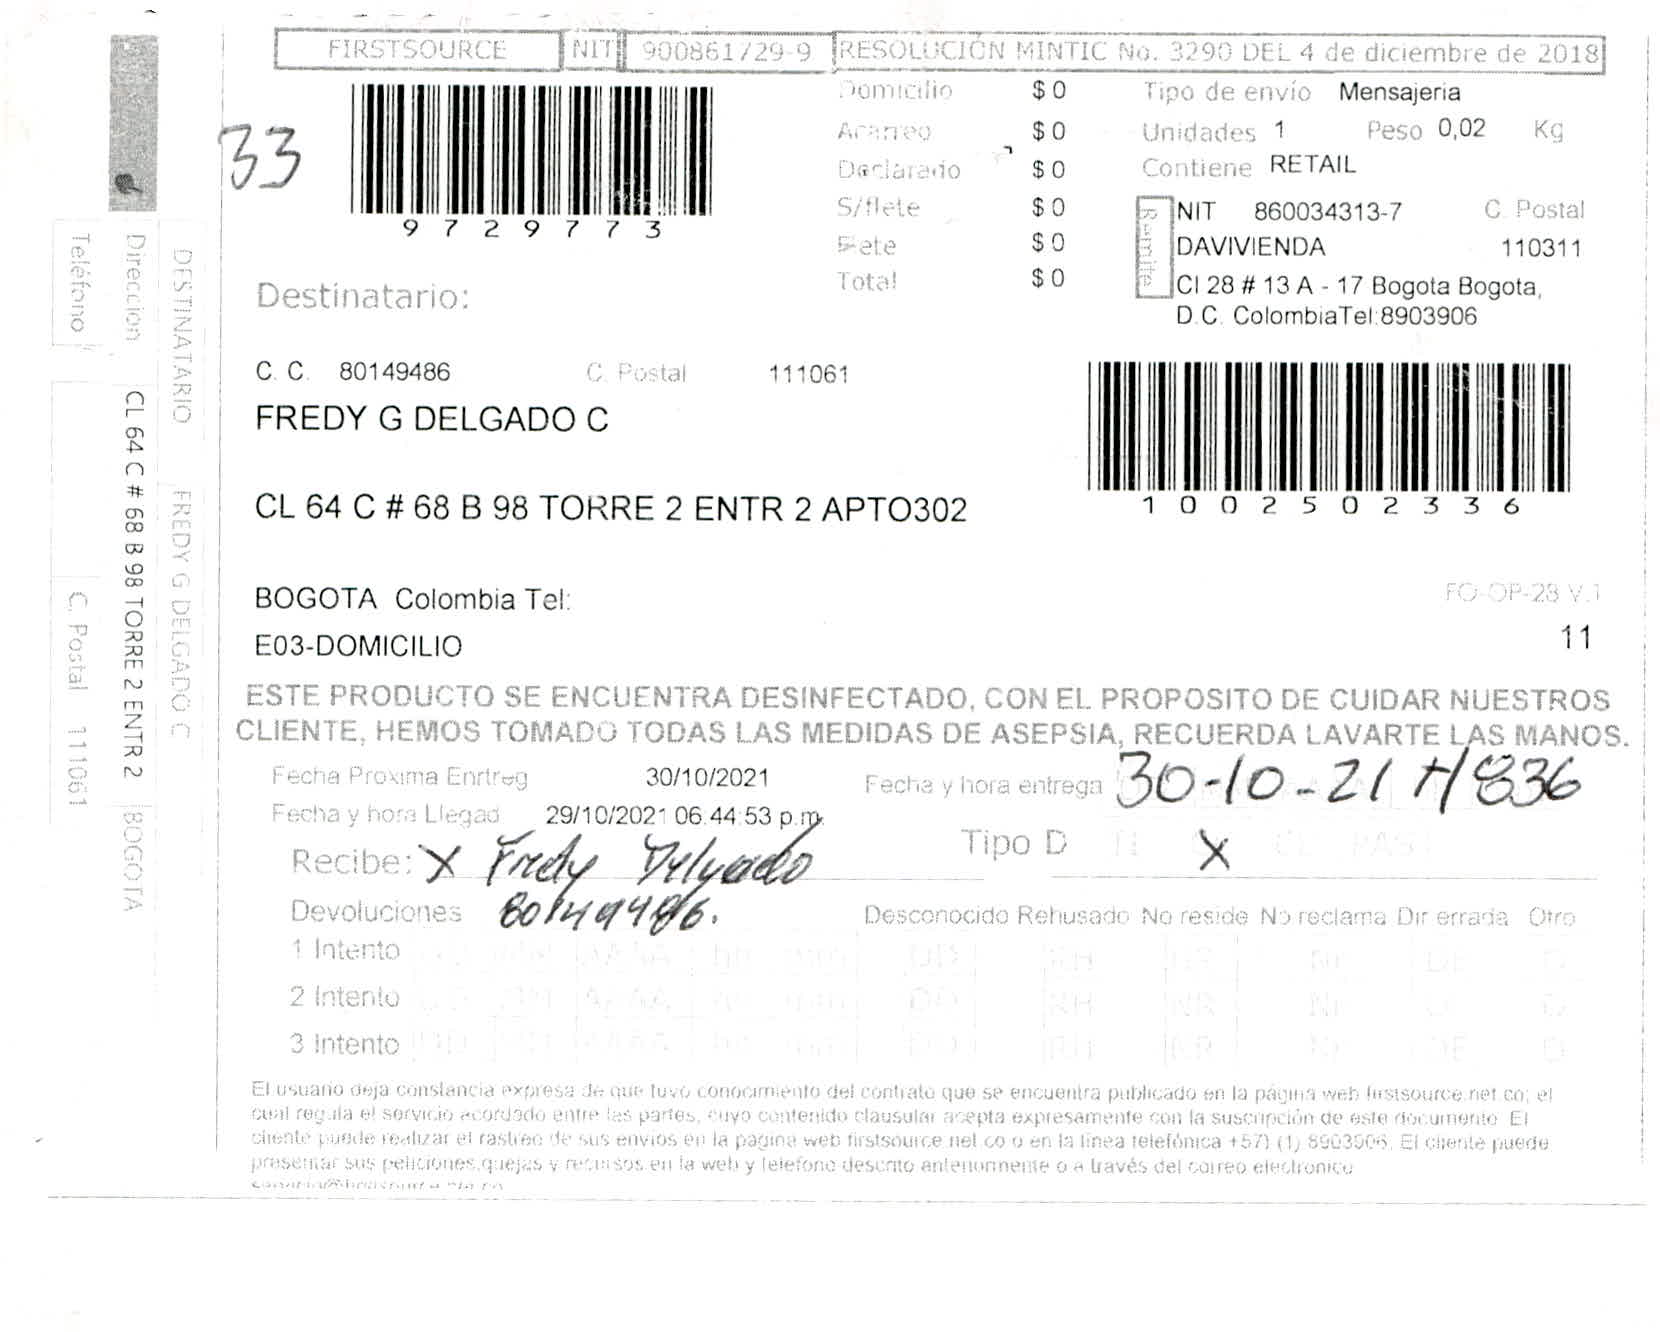 FIRSTSOURCE NIT 900861729-9 RESOLUCIÓN MINTIC No. 3290 DEL 4 de diciembre de 2018
33
9729773
Domicilio $ 0
Acarreo $ 0
Declarado $ 0
S/flete $ 0
Flete $ 0
Total $ 0
Tipo de envío Mensajeria
Unidades 1 Peso 0,02 Kg
Contiene RETAIL
Remite
NIT 860034313-7 C. Postal
DAVIVIENDA 110311
Cl 28 # 13 A - 17 Bogota Bogota,
D.C. ColombiaTel:8903906
Destinatario:
C. C. 80149486 C. Postal 111061
FREDY G DELGADO C
CL 64 C # 68 B 98 TORRE 2 ENTR 2 APTO302
1002502336
BOGOTA Colombia Tel:
E03-DOMICILIO
FO-OP-28 V.1
11
ESTE PRODUCTO SE ENCUENTRA DESINFECTADO, CON EL PROPOSITO DE CUIDAR NUESTROS
CLIENTE, HEMOS TOMADO TODAS LAS MEDIDAS DE ASEPSIA, RECUERDA LAVARTE LAS MANOS.
Fecha Proxima Enrtreg 30/10/2021
Fecha y hora entrega 30-10-21 H/836
Fecha y hora Llegad 29/10/2021 06:44:53 p.m.
Tipo D X
Recibe: X Fredy Delgado
80149486.
Devoluciones Desconocido Rehusado No reside No reclama Dir errada Otro
1 Intento DD MM AAAA hh mm DD RH NR NI DE O
2 Intento DD MM AAAA hh mm DD RH NR NI DE O
3 Intento DD MM AAAA hh mm DD RH NR NI DE O
El usuario deja constancia expresa de que tuvo conocimiento del contrato que se encuentra publicado en la página web firstsource.net.co; el
cual regula el servicio acordado entre las partes, cuyo contenido clausular acepta expresamente con la suscripción de este documento. El
cliente puede realizar el rastreo de sus envios en la pagina web firstsource.net.co o en la línea telefónica +57) (1) 8903906. El cliente puede
presentar sus peticiones,quejas y recursos en la web y telefono descrito anteriormente o a través del correo electronico
DESTINATARIO FREDY G DELGADO C
Direccion CL 64 C # 68 B 98 TORRE 2 ENTR 2 BOGOTA
Teléfono C. Postal 111061